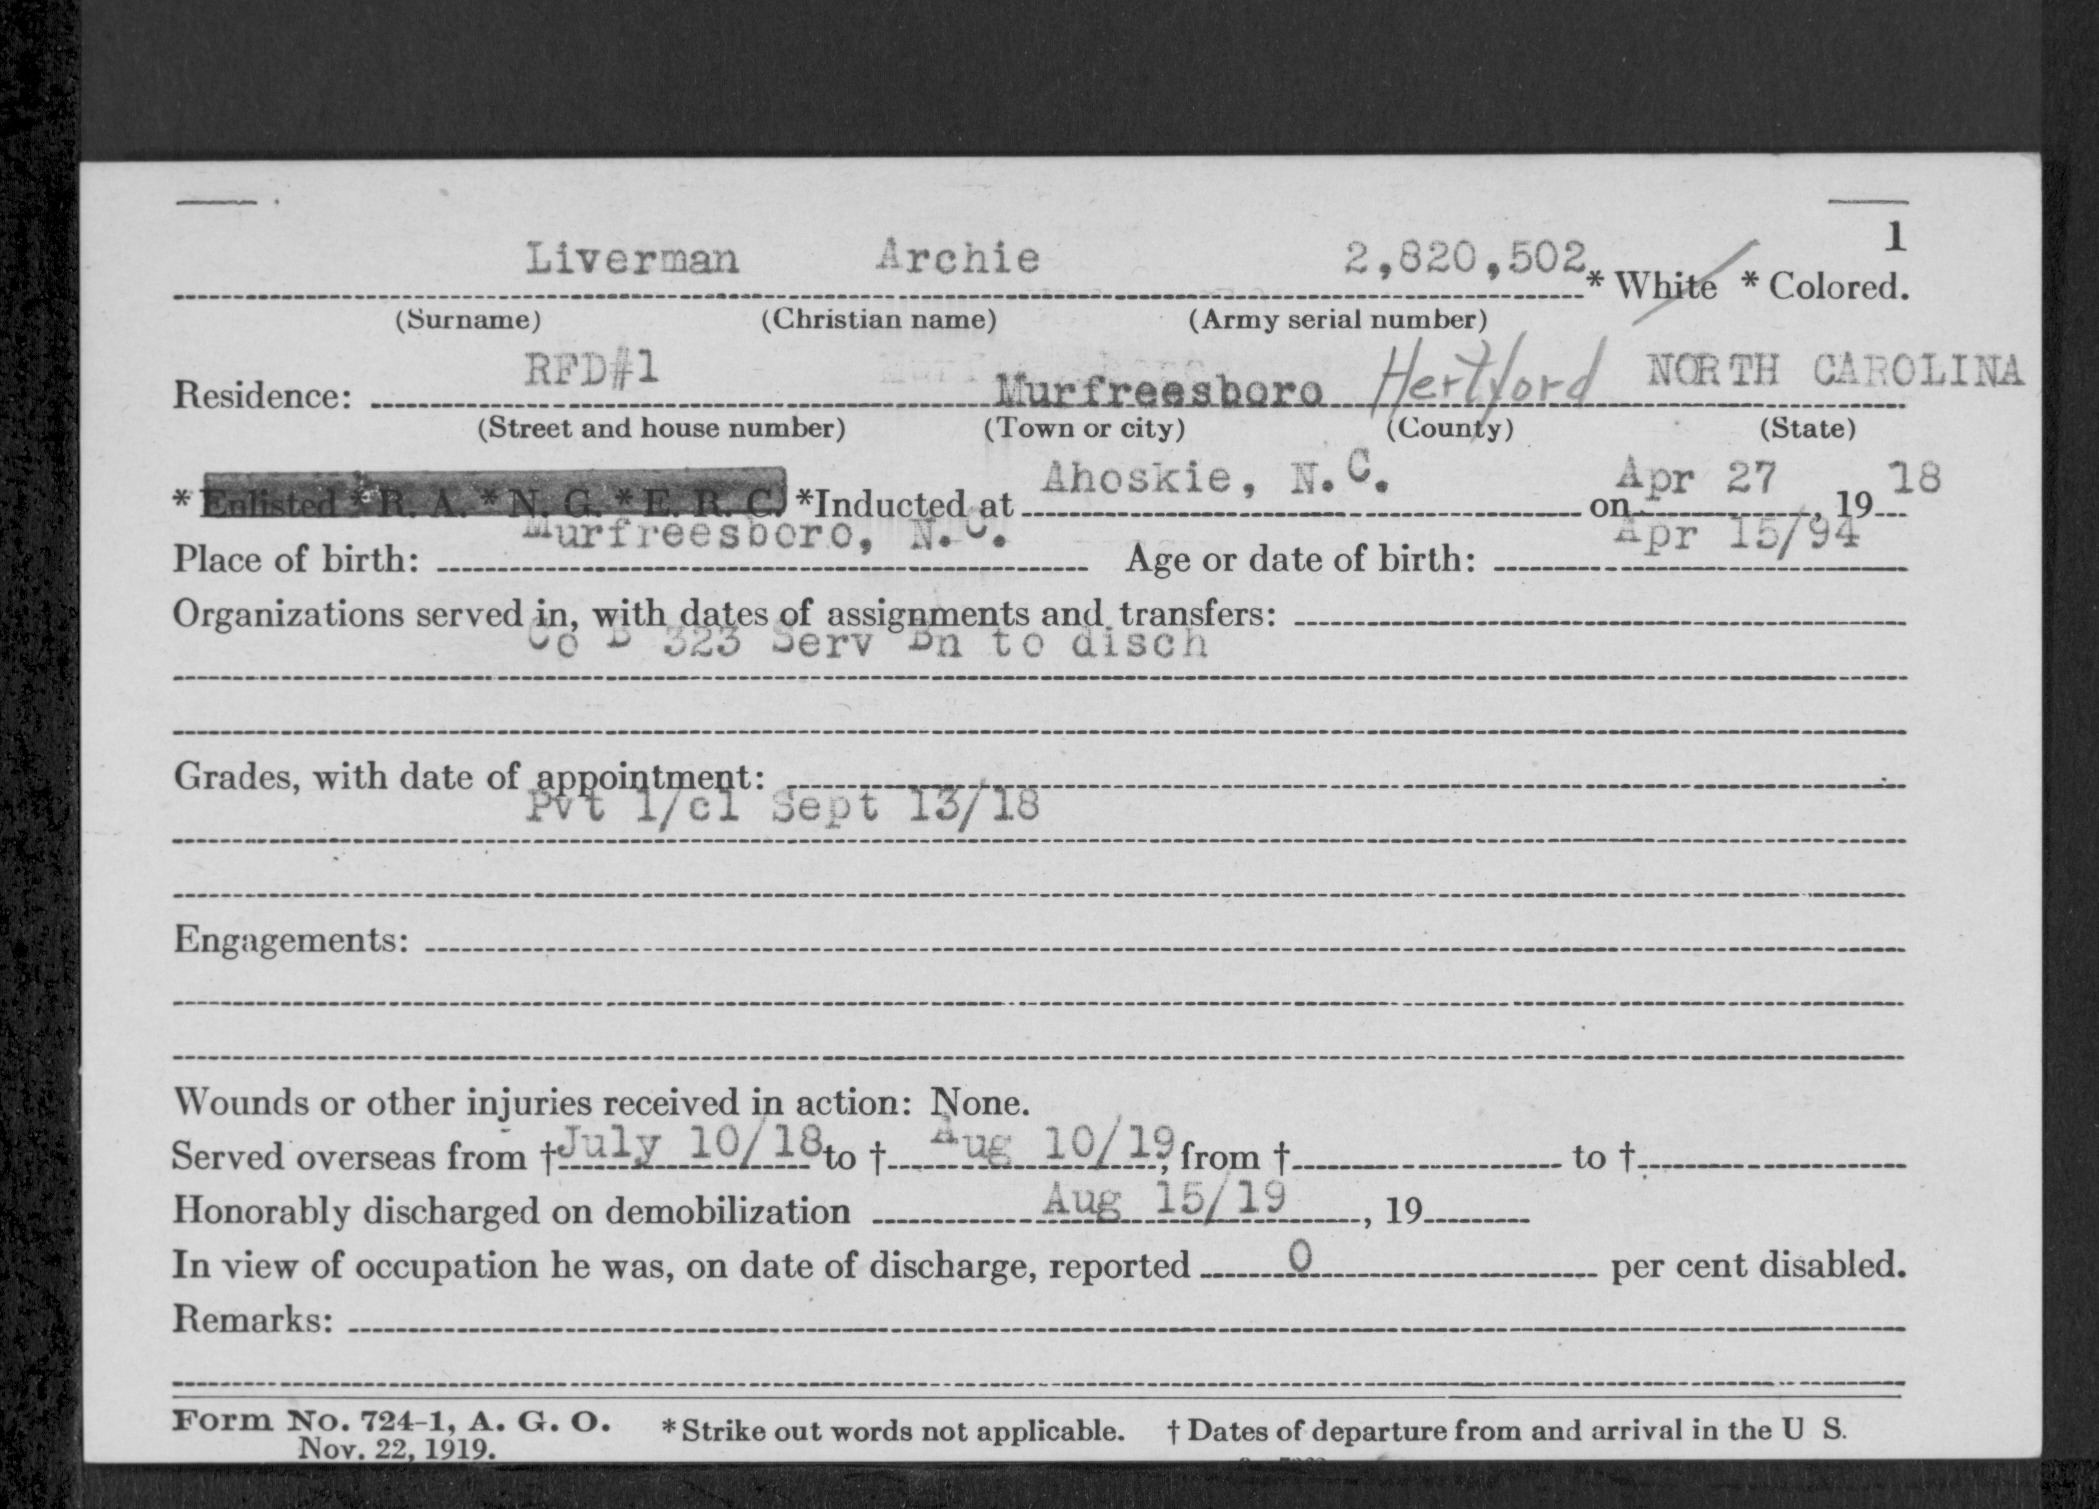 1
Liverman Archie 2,820,502 * White * Colored.
(Surname) (Christian name) (Army serial number)
Residence: RFD#1 Murfreesboro Hertford NORTH CAROLINA
(Street and house number) (Town or city) (County) (State)
* Enlisted * R. A. * N. G. * E. R. C. *Inducted at Ahoskie, N.C. on Apr 27, 19 18
Place of birth: Murfreesboro, N.C. Age or date of birth: Apr 15/94
Organizations served in, with dates of assignments and transfers:
Co B 323 Serv Bn to disch
Grades, with date of appointment:
Pvt 1/cl Sept 13/18
Engagements:
Wounds or other injuries received in action: None.
Served overseas from † July 10/18 to † Aug 10/19, from † to †
Honorably discharged on demobilization Aug 15/19, 19
In view of occupation he was, on date of discharge, reported 0 per cent disabled.
Remarks:
Form No. 724-1, A. G. O. * Strike out words not applicable. † Dates of departure from and arrival in the U S.
Nov. 22, 1919.